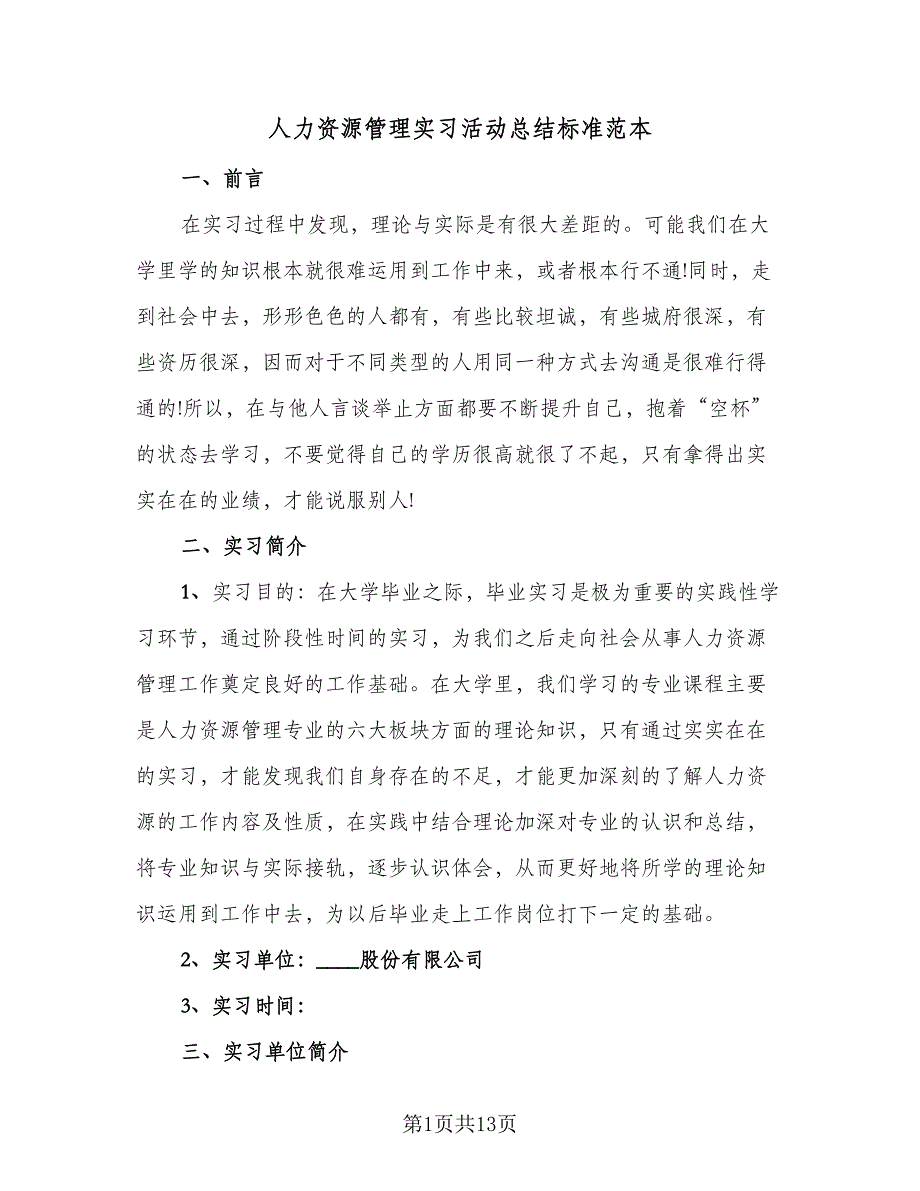 人力资源管理实习活动总结标准范本
一、前言
在实习过程中发现，理论与实际是有很大差距的。可能我们在大
学里学的知识根本就很难运用到工作中来，或者根本行不通!同时，走
到社会中去，形形色色的人都有，有些比较坦诚，有些城府很深，有
些资历很深，因而对于不同类型的人用同一种方式去沟通是很难行得
通的!所以，在与他人言谈举止方面都要不断提升自己，抱着“空杯”
的状态去学习，不要觉得自己的学历很高就很了不起，只有拿得出实
实在在的业绩，才能说服别人!
二、实习简介
1、实习目的：在大学毕业之际，毕业实习是极为重要的实践性学
习环节，通过阶段性时间的实习，为我们之后走向社会从事人力资源
管理工作奠定良好的工作基础。在大学里，我们学习的专业课程主要
是人力资源管理专业的六大板块方面的理论知识，只有通过实实在在
的实习，才能发现我们自身存在的不足，才能更加深刻的了解人力资
源的工作内容及性质，在实践中结合理论加深对专业的认识和总结，
将专业知识与实际接轨，逐步认识体会，从而更好地将所学的理论知
识运用到工作中去，为以后毕业走上工作岗位打下一定的基础。
2、实习单位：____股份有限公司
3、实习时间：
三、实习单位简介
第1页共13页